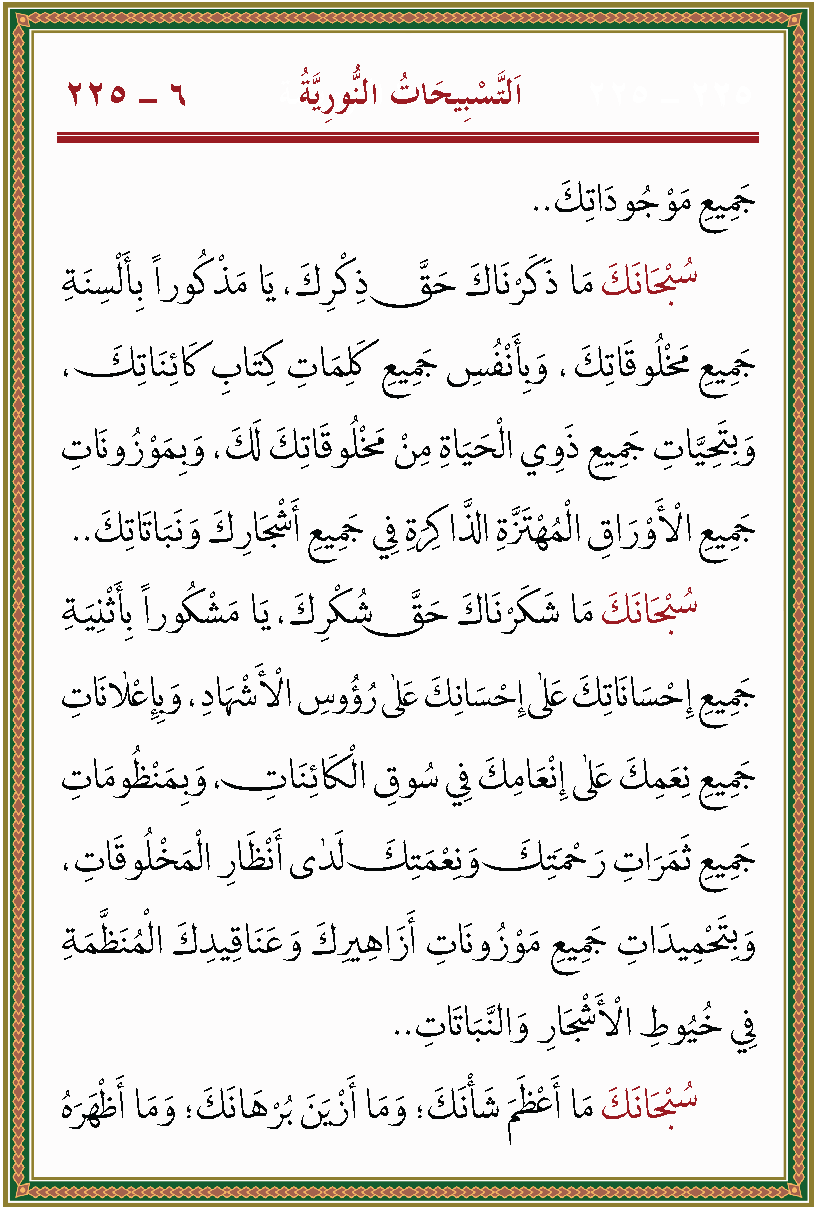 اَلتَّسْبِيحَاتُ النُّورِيَّةُ ٦ – ٢٢٥
جَمِيعِ مَوْجُودَاتِكَ..
سُبْحَانَكَ مَا ذَكَرْنَاكَ حَقَّ ذِكْرِكَ، يَا مَذْكُوراً بِأَلْسِنَةِ
جَمِيعِ مَخْلُوقَاتِكَ، وَبِأَنْفُسِ جَمِيعِ كَلِمَاتِ كِتَابِ كَائِنَاتِكَ،
وَبِتَحِيَّاتِ جَمِيعِ ذَوِي الْحَيَاةِ مِنْ مَخْلُوقَاتِكَ لَكَ، وَبِمَوْزُونَاتِ
جَمِيعِ الْأَوْرَاقِ الْمُهْتَزَّةِ الذَّاكِرَةِ فِي جَمِيعِ أَشْجَارِكَ وَنَبَاتَاتِكَ..
سُبْحَانَكَ مَا شَكَرْنَاكَ حَقَّ شُكْرِكَ، يَا مَشْكُوراً بِأَثْنِيَةِ
جَمِيعِ إِحْسَانَاتِكَ عَلٰى إِحْسَانِكَ عَلٰى رُؤُوسِ الْأَشْهَادِ، وَبِإِعْلَانَاتِ
جَمِيعِ نِعَمِكَ عَلٰى إِنْعَامِكَ فِي سُوقِ الْكَائِنَاتِ، وَبِمَنْظُومَاتِ
جَمِيعِ ثَمَرَاتِ رَحْمَتِكَ وَنِعْمَتِكَ لَدٰى أَنْظَارِ الْمَخْلُوقَاتِ،
وَبِتَحْمِيدَاتِ جَمِيعِ مَوْزُونَاتِ أَزَاهِيرِكَ وَعَنَاقِيدِكَ الْمُنَظَّمَةِ
فِي خُيُوطِ الْأَشْجَارِ وَالنَّبَاتَاتِ..
سُبْحَانَكَ مَا أَعْظَمَ شَأْنَكَ؛ وَمَا أَزْيَنَ بُرْهَانَكَ؛ وَمَا أَظْهَرَهُ